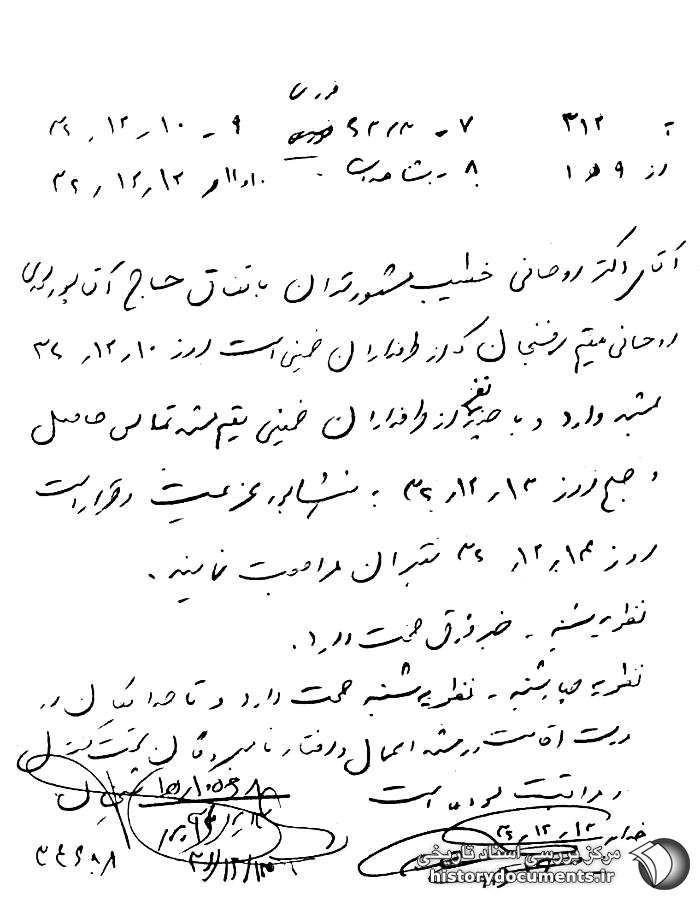 فوری
به ۳۱۲ ۷ - ۹ - ۳۶,۱۲,۱۰
از ۹ ﻫ ۱ ۸ - مشاهدات ۳۶,۱۲,۱۳
آقای دکتر روحانی خطیب مشهور تهران باتفاق حاج آقا پور محمدی
روحانی مقیم رفسنجان که از طرفداران خمینی است روز ۳۶,۱۲,۱۰
بمشهد وارد و با چند نفر از طرفداران خمینی مقیم مشهد تماس حاصل
و صبح روز ۳۶,۱۲,۱۳ به نیشابور عزیمت و قرار است
روز ۳۶,۱۲,۱۴ بتهران مراجعت نمایند.
نظریه شنبه - خبر فوق صحت دارد.
نظریه چهارشنبه - نظریه شنبه صحت دارد و تا حد امکان در
مدت اقامت در مشهد اعمال و رفتار نامبردگان تحت کنترل
و مراقبت بوده است
۳۶,۱۲,۱۳
مرکز بررسی اسناد تاریخی
historydocuments.ir